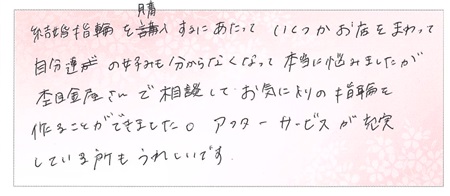 結婚指輪を購入するにあたって いくつかお店をまわって
自分達の好みも分からなくなって本当に悩みましたが
杢目金屋さんで相談してお気に入りの指輪を
作ることができました。アフターサービスが充実
している所もうれしいです。